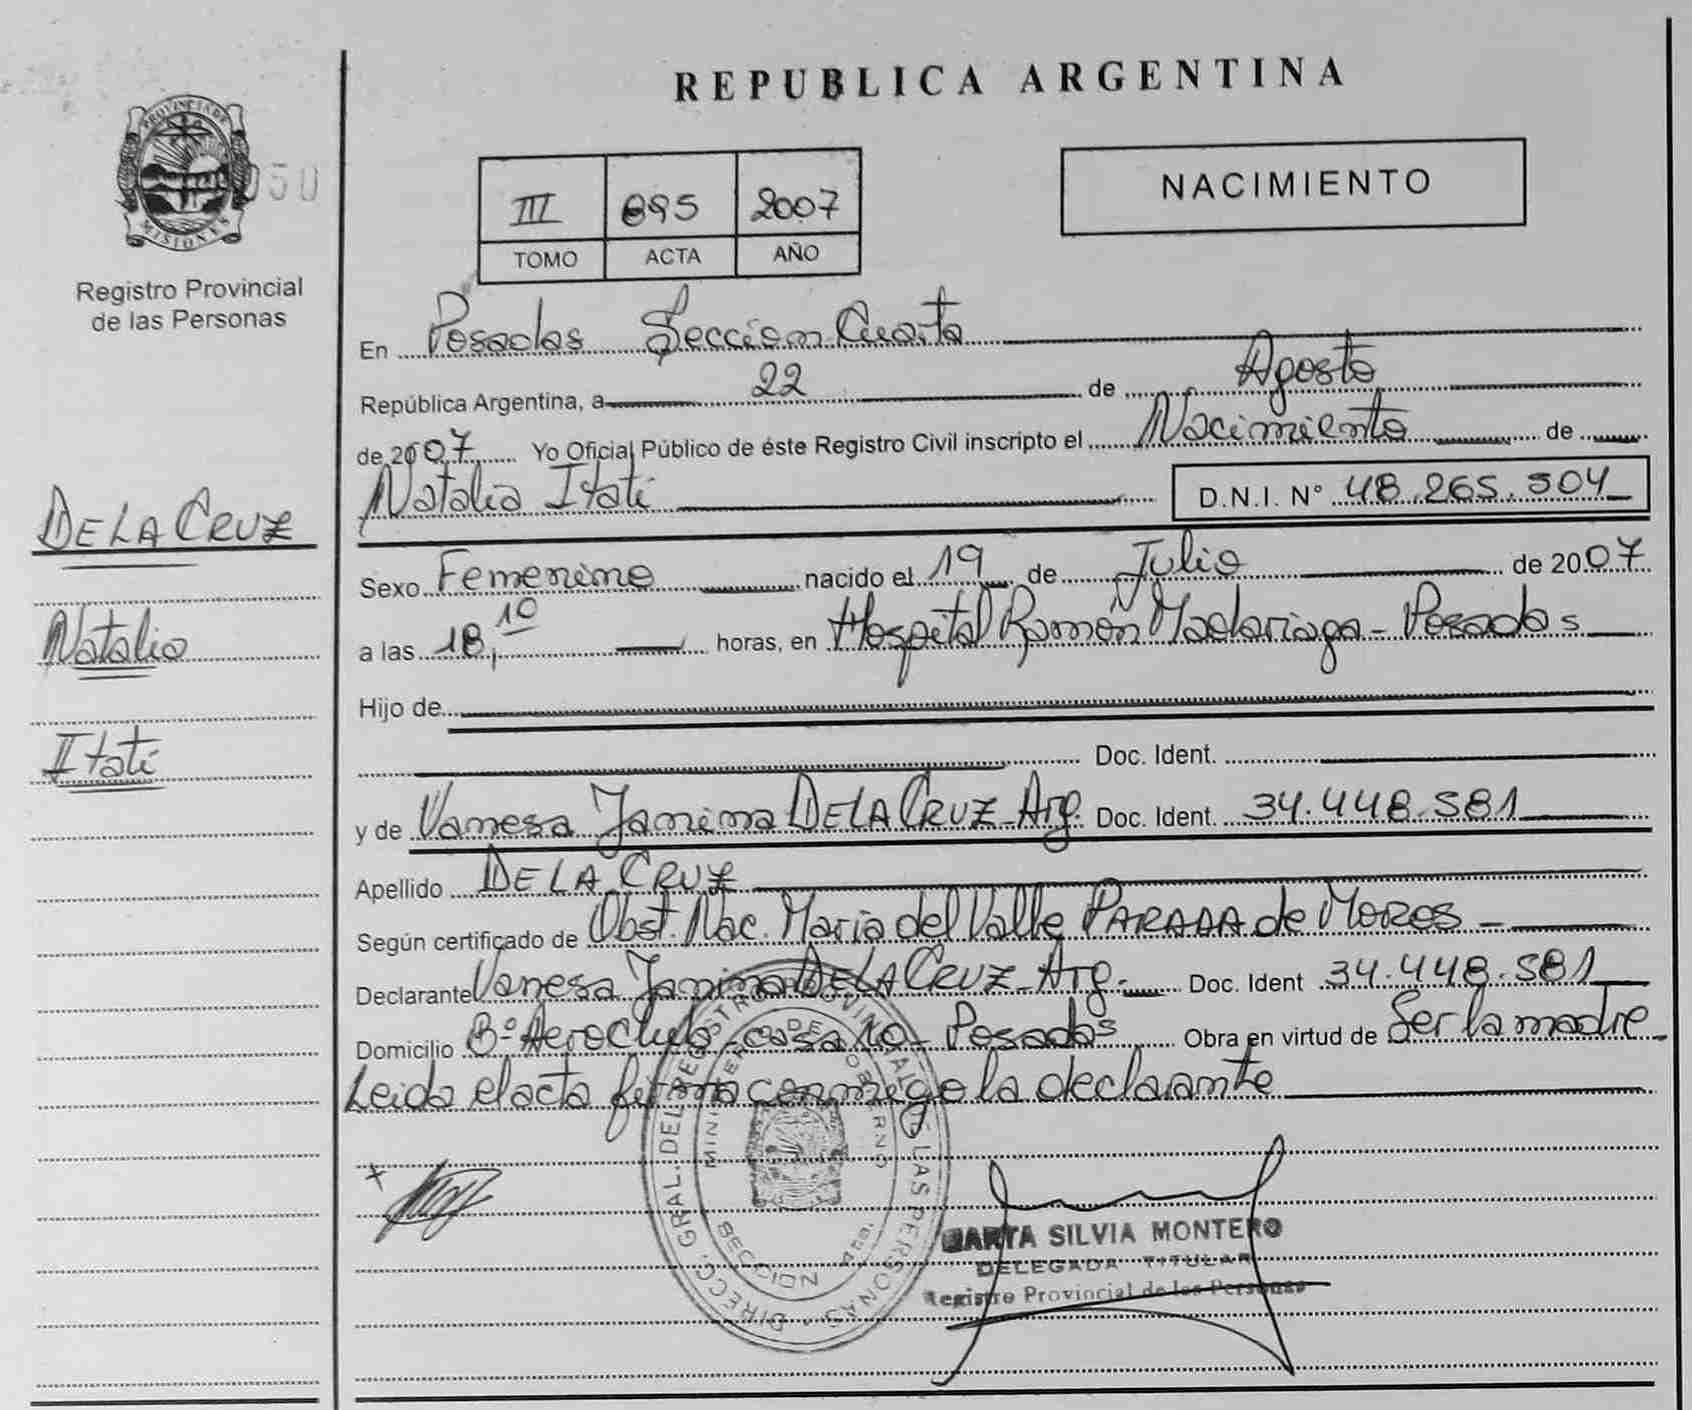 REPUBLICA ARGENTINA
PROVINCIA DE
MISIONES
050
Registro Provincial
de las Personas
III 895 2007
TOMO ACTA AÑO
NACIMIENTO
En Posadas Seccion Cuarta
República Argentina, a 22 de Agosto
de 2007 Yo Oficial Público de éste Registro Civil inscripto el Nacimiento de
Natalia Itati D.N.I. N° 48.265.504
DE LA CRUZ
Natalia
Itati
Sexo Femenino nacido el 19 de Julio de 2007
a las 18,10 horas, en Hospital Ramón Madariaga - Posadas
Hijo de
Doc. Ident.
y de Vanesa Janina DE LA CRUZ - Arg. Doc. Ident. 34.448.581
Apellido DE LA CRUZ
Según certificado de Obst. Nac. Maria del Valle PARADA de MOROS -
Declarante Vanesa Janina DE LA CRUZ - Arg. - Doc. Ident 34.448.581
Domicilio B° Aeroclub - casa 10 - Posadas Obra en virtud de Ser la madre -
Leida el acta firma conmigo la declarante
DIRECC. GRAL. DEL REGISTRO PROVINCIAL DE LAS PERSONAS
MINISTERIO DE GOBIERNO
SECCION 4ta.
MARTA SILVIA MONTERO
DELEGADA TITULAR
Registro Provincial de las Personas